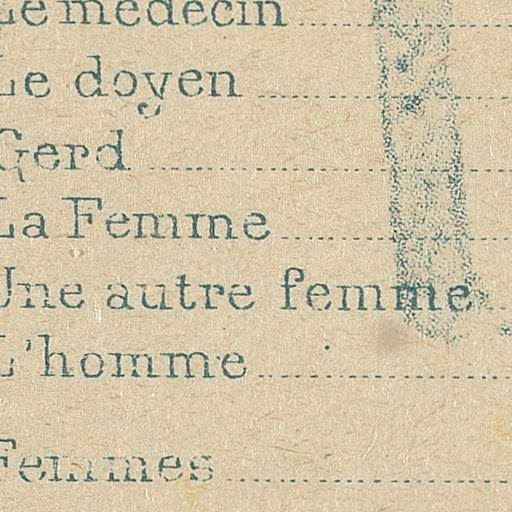 Le médecin
Le doyen
Gerd
La Femme
Une autre femme
L'homme
Femmes